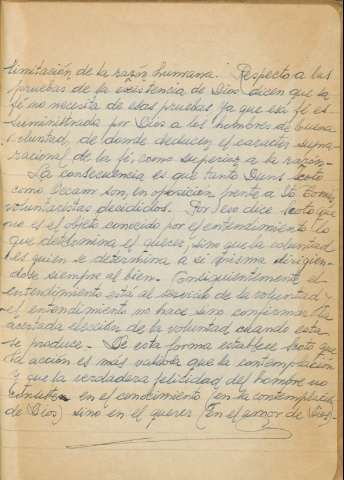 limitación de la razón humana. Respecto a las
pruebas de la existencia de Dios dicen que la
fé no necesita de esas pruebas ya que esa fé es
suministrada por Dios a los hombres de buena
voluntad, de donde deducen el carácter supra-
racional de la fé, como superior a la razón.-
La consecuencia es que tanto Duns Scoto
como Occam son, en oposición frente a Sto. Tomás,
voluntaristas decididos. Por eso dice Scoto que
no es el objeto conocido por el entendimiento lo
que determina el querer, sino que la voluntad
es quien se determina a si misma dirigien-
dose siempre al bien. Consiguientemente el
entendimiento está al servicio de la voluntad y
el entendimiento no hace sino confirmar la
acertada elección de la voluntad cuando esta
se produce. De esta forma establece Scoto que
la acción es más valiosa que la contemplación
y que la verdadera felicidad del hombre no
consiste en el conocimiento (en la contemplación
de Dios) sino en el querer (en el amor de Dios).-